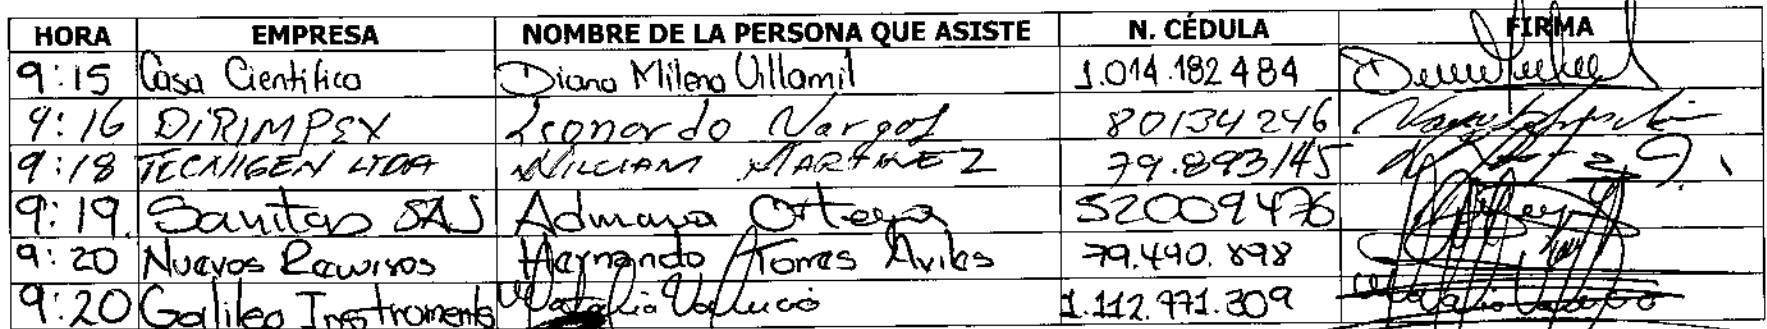 HORA EMPRESA NOMBRE DE LA PERSONA QUE ASISTE N. CÉDULA FIRMA
9:15 Casa Cientifica Diana Milena Villamil 1.014.182484
9:16 DIRIMPEX Leonardo Vargas 80134246
9:18 TECNIGEN LTDA WILLIAM MARTINEZ 79.893145
9:19 Sanitas SAS Adriana Ortega 52009476
9:20 Nuevos Recursos Hernando Torres Aviles 79.490.898
9:20 Galileo Instruments Natalia 1.112.971.309